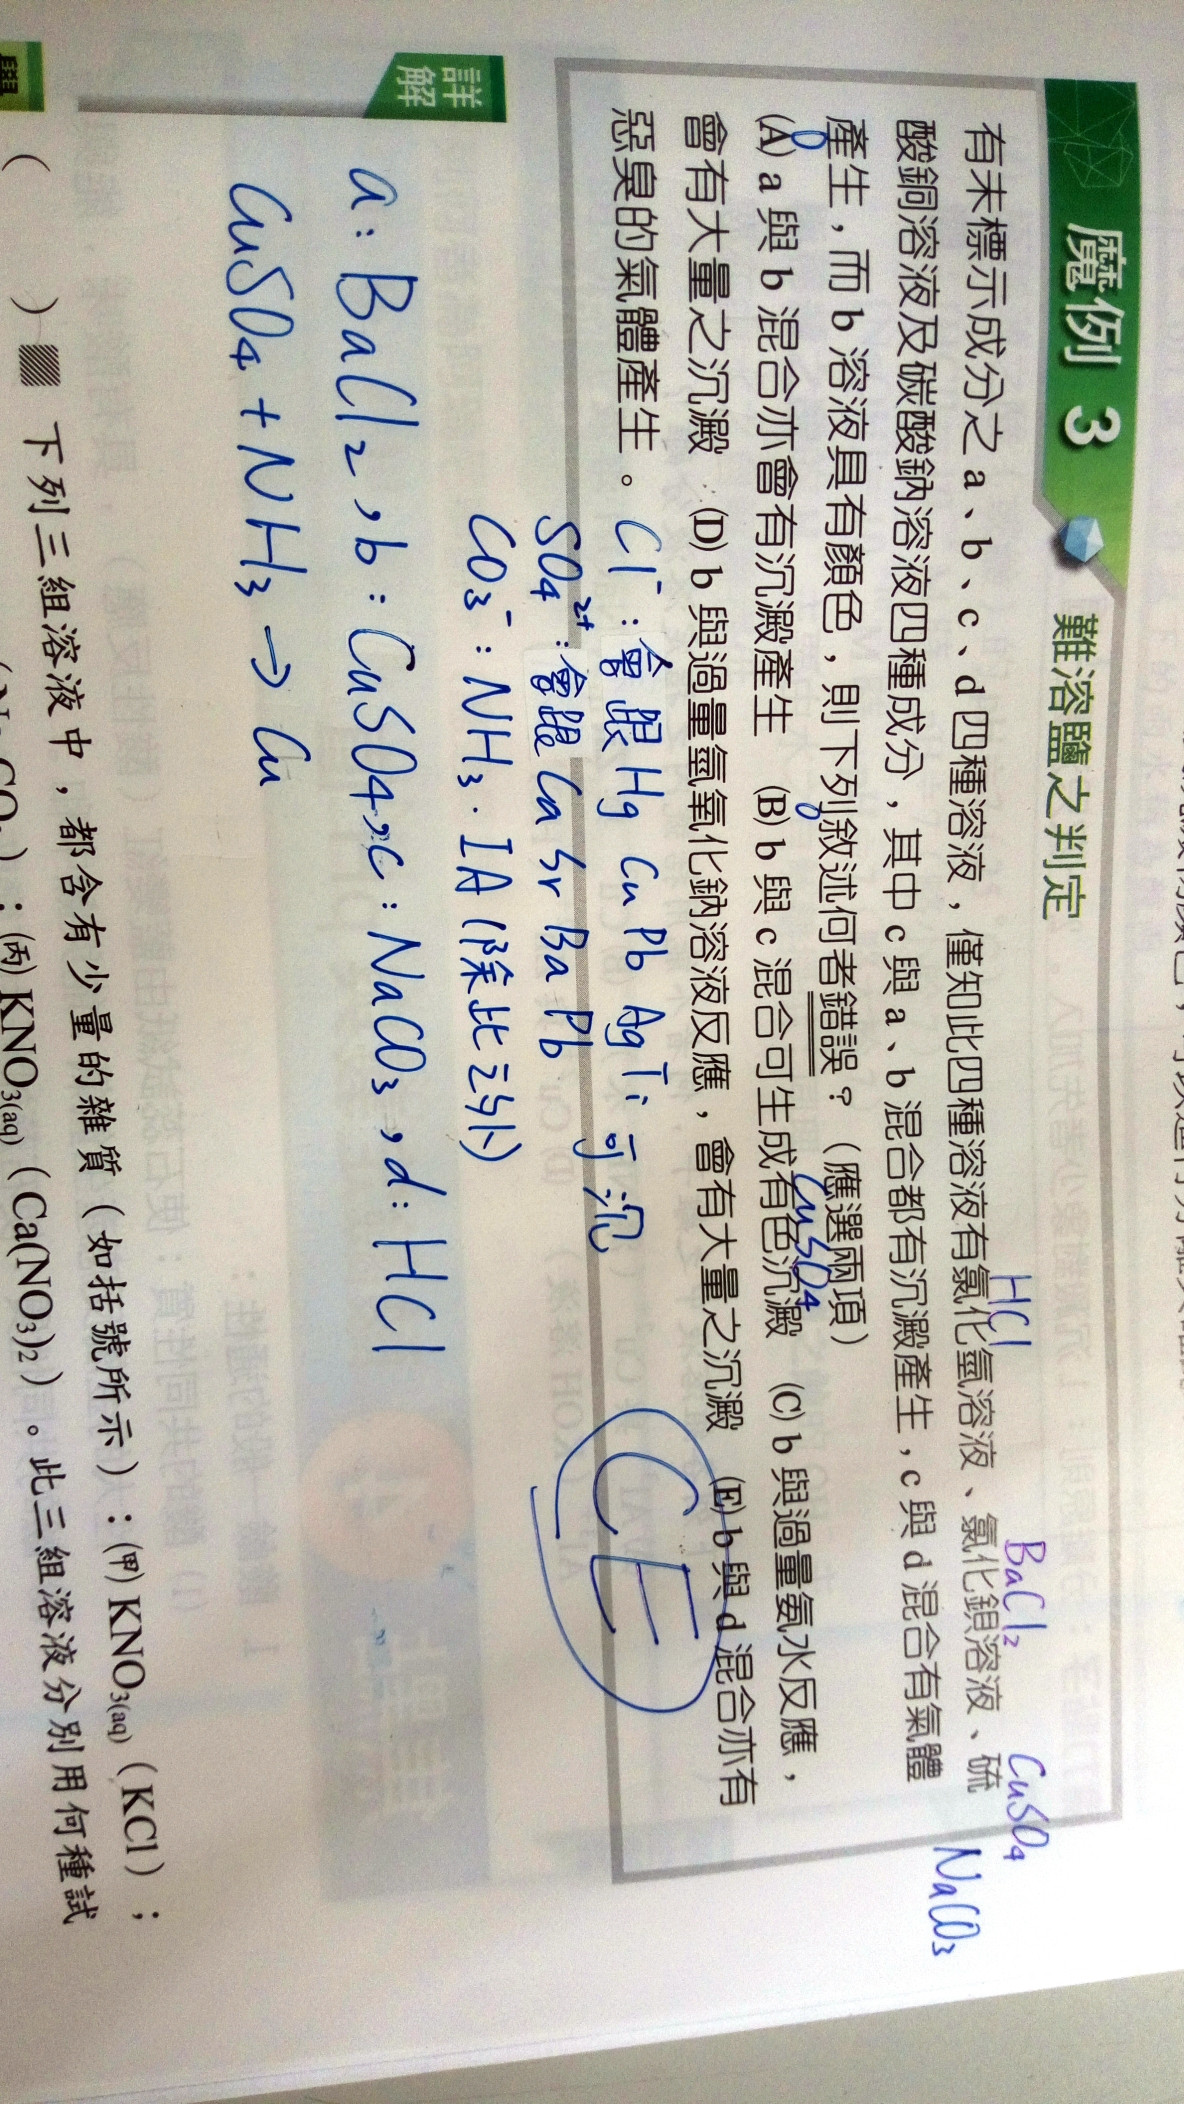 魔例 3 難溶鹽之判定
HCl BaCl₂ CuSO₄
NaCO₃
有未標示成分之 a、b、c、d 四種溶液，僅知此四種溶液有氯化氫溶液、氯化鋇溶液、硫
酸銅溶液及碳酸鈉溶液四種成分，其中 c 與 a、b 混合都有沉澱產生，c 與 d 混合有氣體
產生，而 b 溶液具有顏色，則下列敘述何者錯誤？（應選兩項）
CuSO₄
(A) a 與 b 混合亦會有沉澱產生 (B) b 與 c 混合可生成有色沉澱 (C) b 與過量氨水反應，
會有大量之沉澱 (D) b 與過量氫氧化鈉溶液反應，會有大量之沉澱 (E) b 與 d 混合亦有
惡臭的氣體產生。
CE
Cl⁻：會跟 Hg Cu Pb Ag Ti 可沉
SO₄²⁺：會跟 Ca Sr Ba Pb
CO₃⁻：NH₃．IA (除此之外)
詳解
a：BaCl₂，b：CuSO₄，c：NaCO₃，d：HCl
CuSO₄ + NH₃ → Cu
( ) 下列三組溶液中，都含有少量的雜質（如括號所示）：(甲) KNO₃(aq)（KCl）；
(丙) KNO₃(aq)（Ca(NO₃)₂）。此三組溶液分別用何種試